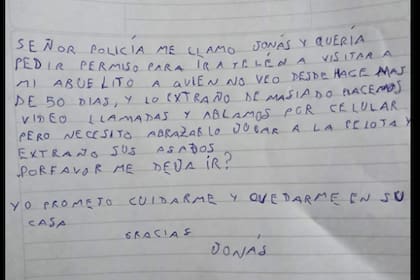 SEÑOR POLICÍA ME LLAMO JONÁS Y QUERÍA
PEDIR PERMISO PARA IR A TELÉN A VISITAR A
MI ABUELITO A QUIEN NO VEO DESDE HACE MAS
DE 50 DIAS, Y LO EXTRAÑO DEMASIADO HACEMOS
VIDEO LLAMADAS Y ABLAMOS POR CELULAR
PERO NECESITO ABRAZARLO JUGAR A LA PELOTA Y
EXTRAÑO SUS ASADOS
PORFAVOR ME DEJA ÍR?
YO PROMETO CUIDARME Y QUEDARME EN SU
CASA
GRACIAS
JONÁS